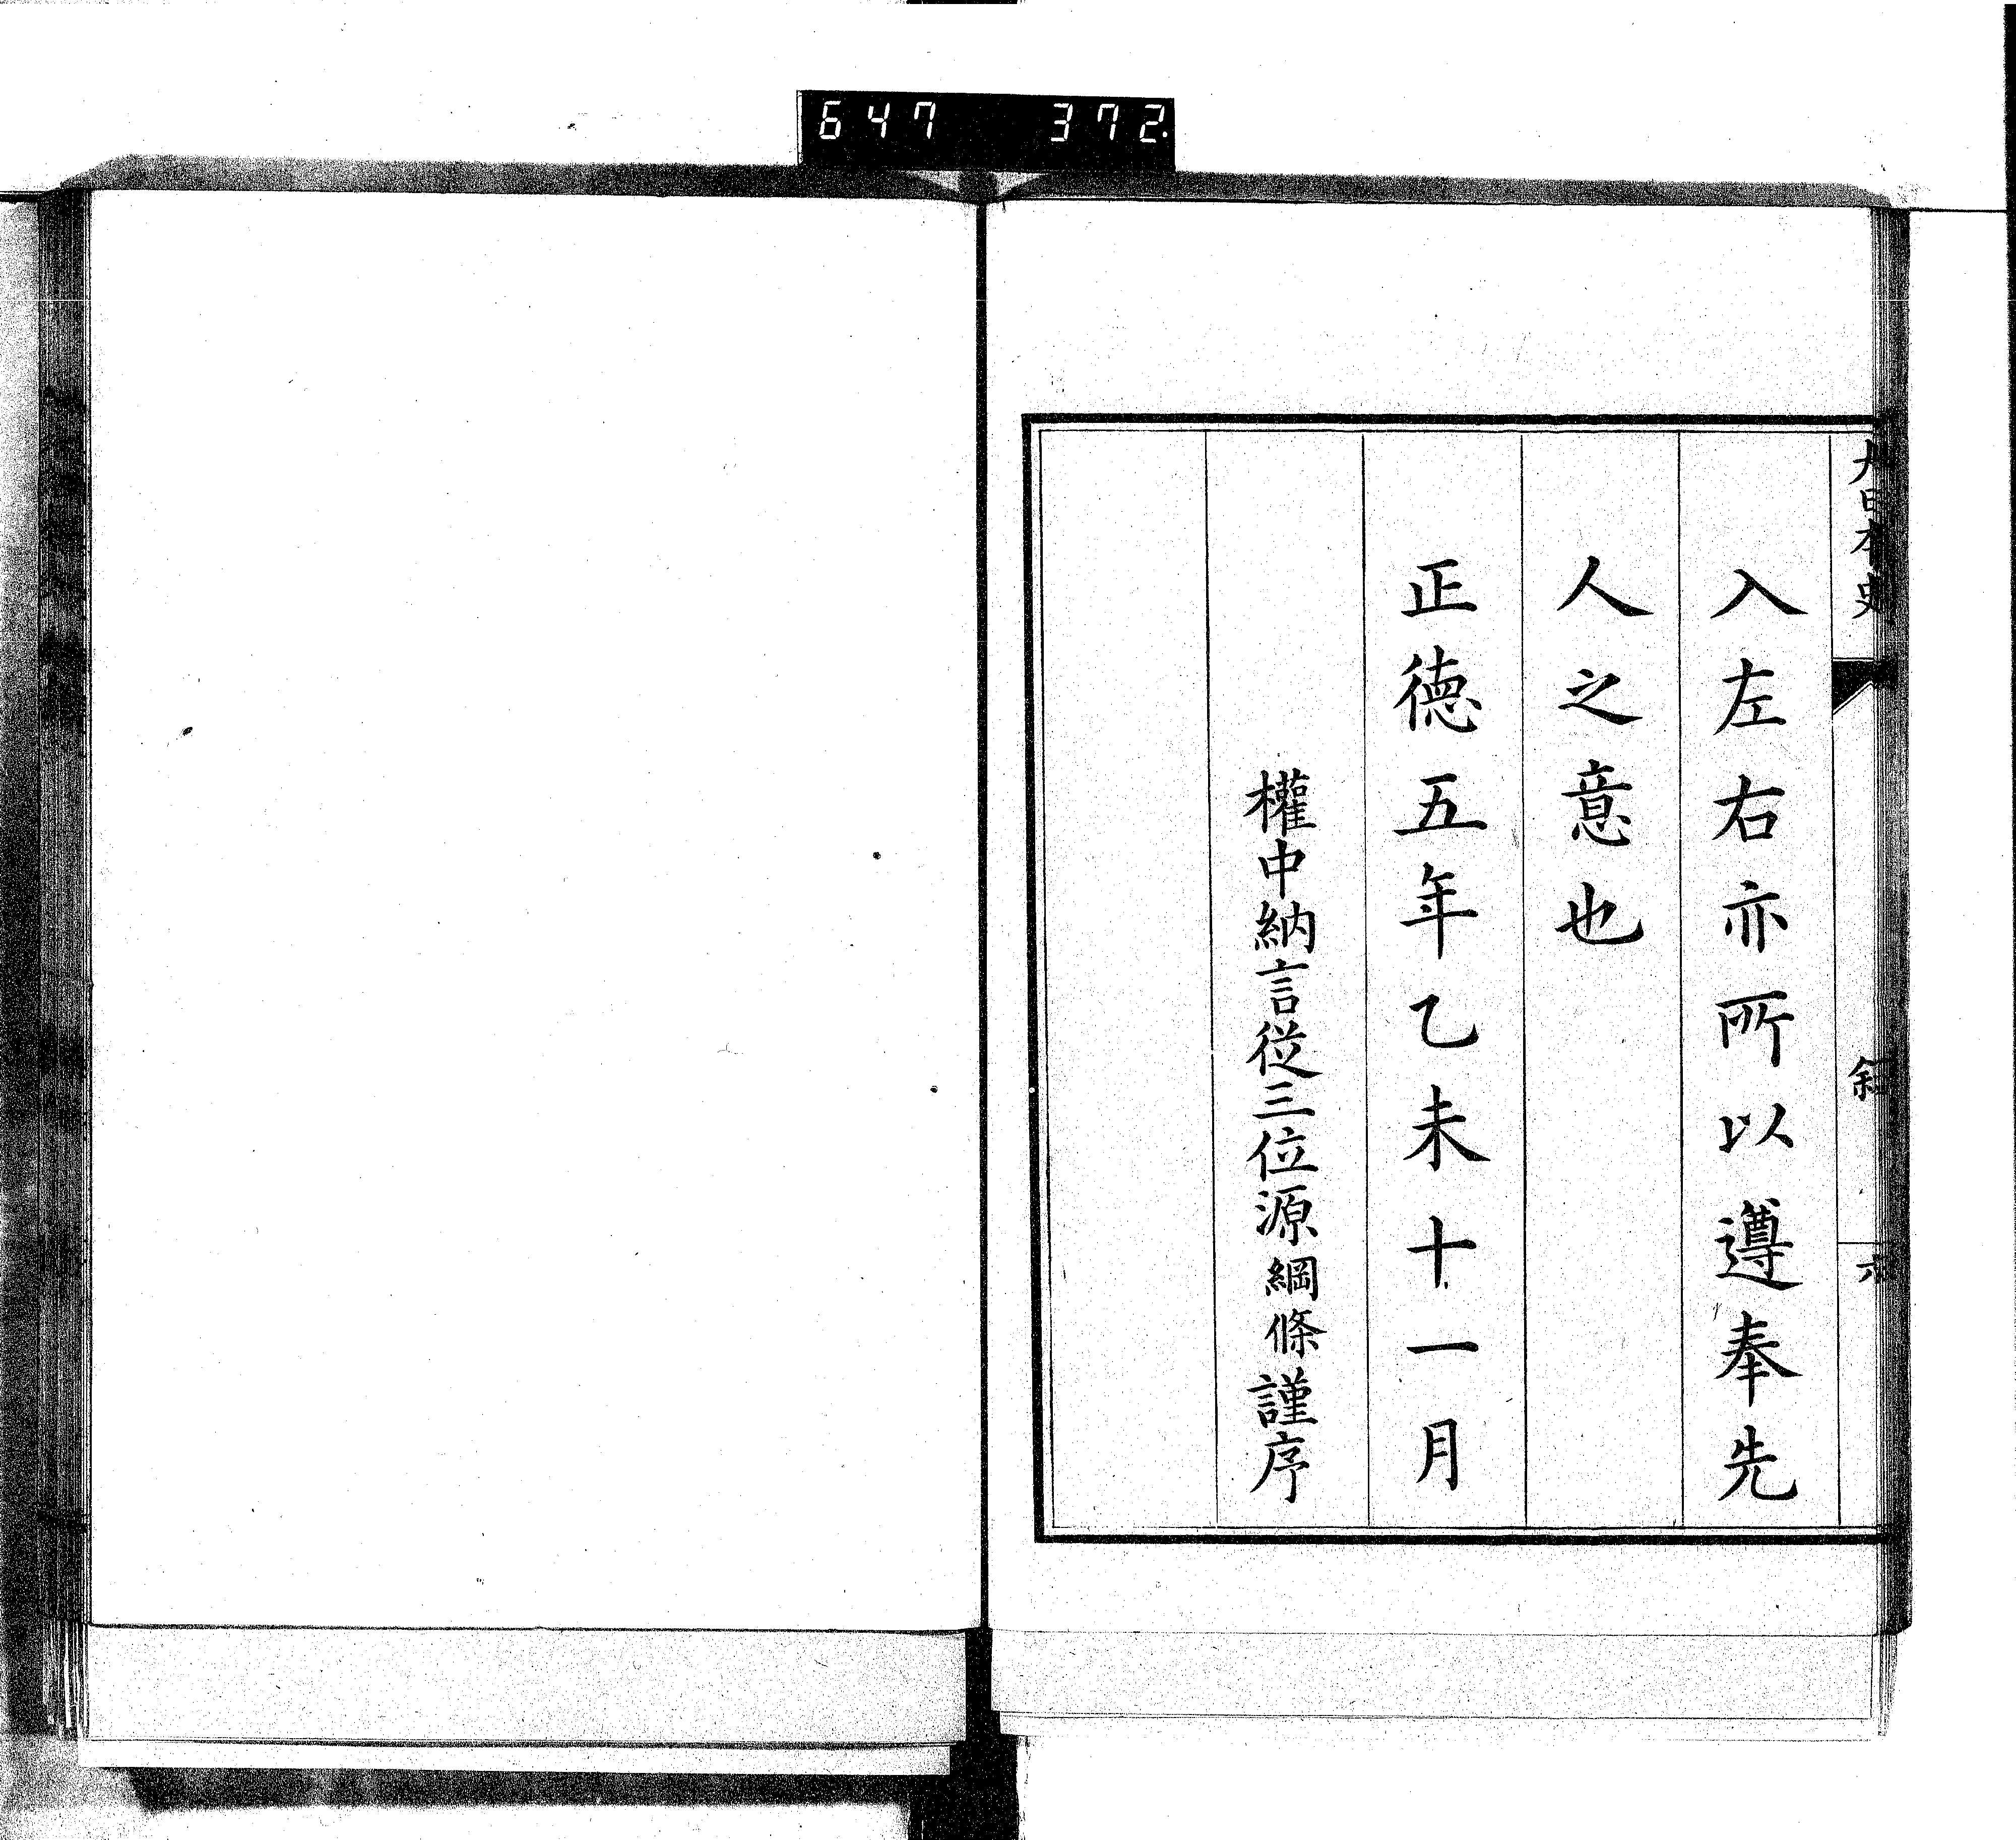 647 372
大日本史
叙
六
入左右亦所以遵奉先
人之意也
正德五年乙未十一月
權中納言從三位源綱條謹序